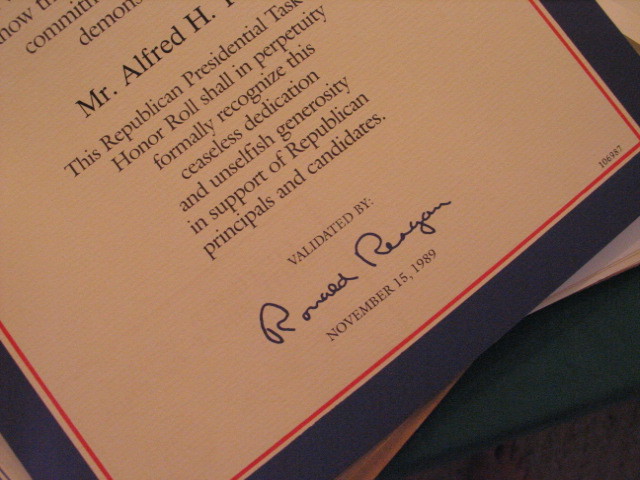 committ
demons
Mr. Alfred H.
This Republican Presidential Task
Honor Roll shall in perpetuity
formally recognize this
ceaseless dedication
and unselfish generosity
in support of Republican
principals and candidates.
VALIDATED BY:
Ronald Reagan
NOVEMBER 15, 1989
106987